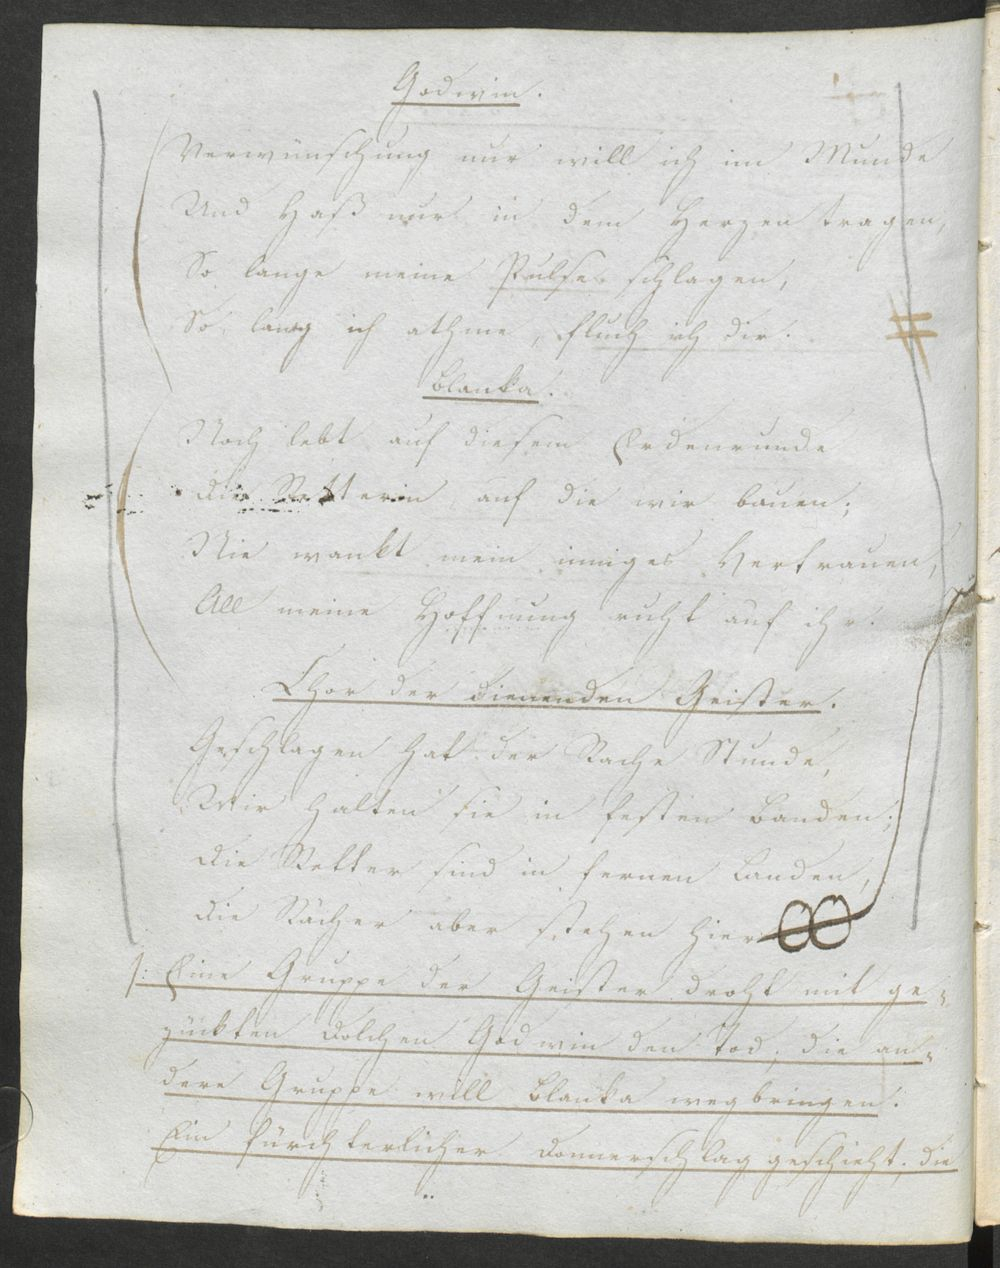 Godwin.
Verwünschung nur will ich im Munde
Und Haß nur in dem Herzen tragen,
So lange meine Pulse schlagen,
So lang ich athme, fluch ich dir.
Blanka.
Noch lebt auf diesem Erdenrunde
Die Retterin auf die wir bauen;
Nie wankt mein inniges Vertrauen,
All meine Hoffnung ruht auf ihr.
Chor der dienenden Geister.
Geschlagen hat der Rache Stunde,
Wir halten sie in festen Banden;
Die Retter sind in fernen Landen,
Die Rächer aber stehen hier
/: Eine Gruppe der Geister droht mit ge=
zückten Dolchen Godwin den Tod, die an=
dere Gruppe will Blanka wegbringen.
Ein fürchterlicher Donnerschlag geschieht, die